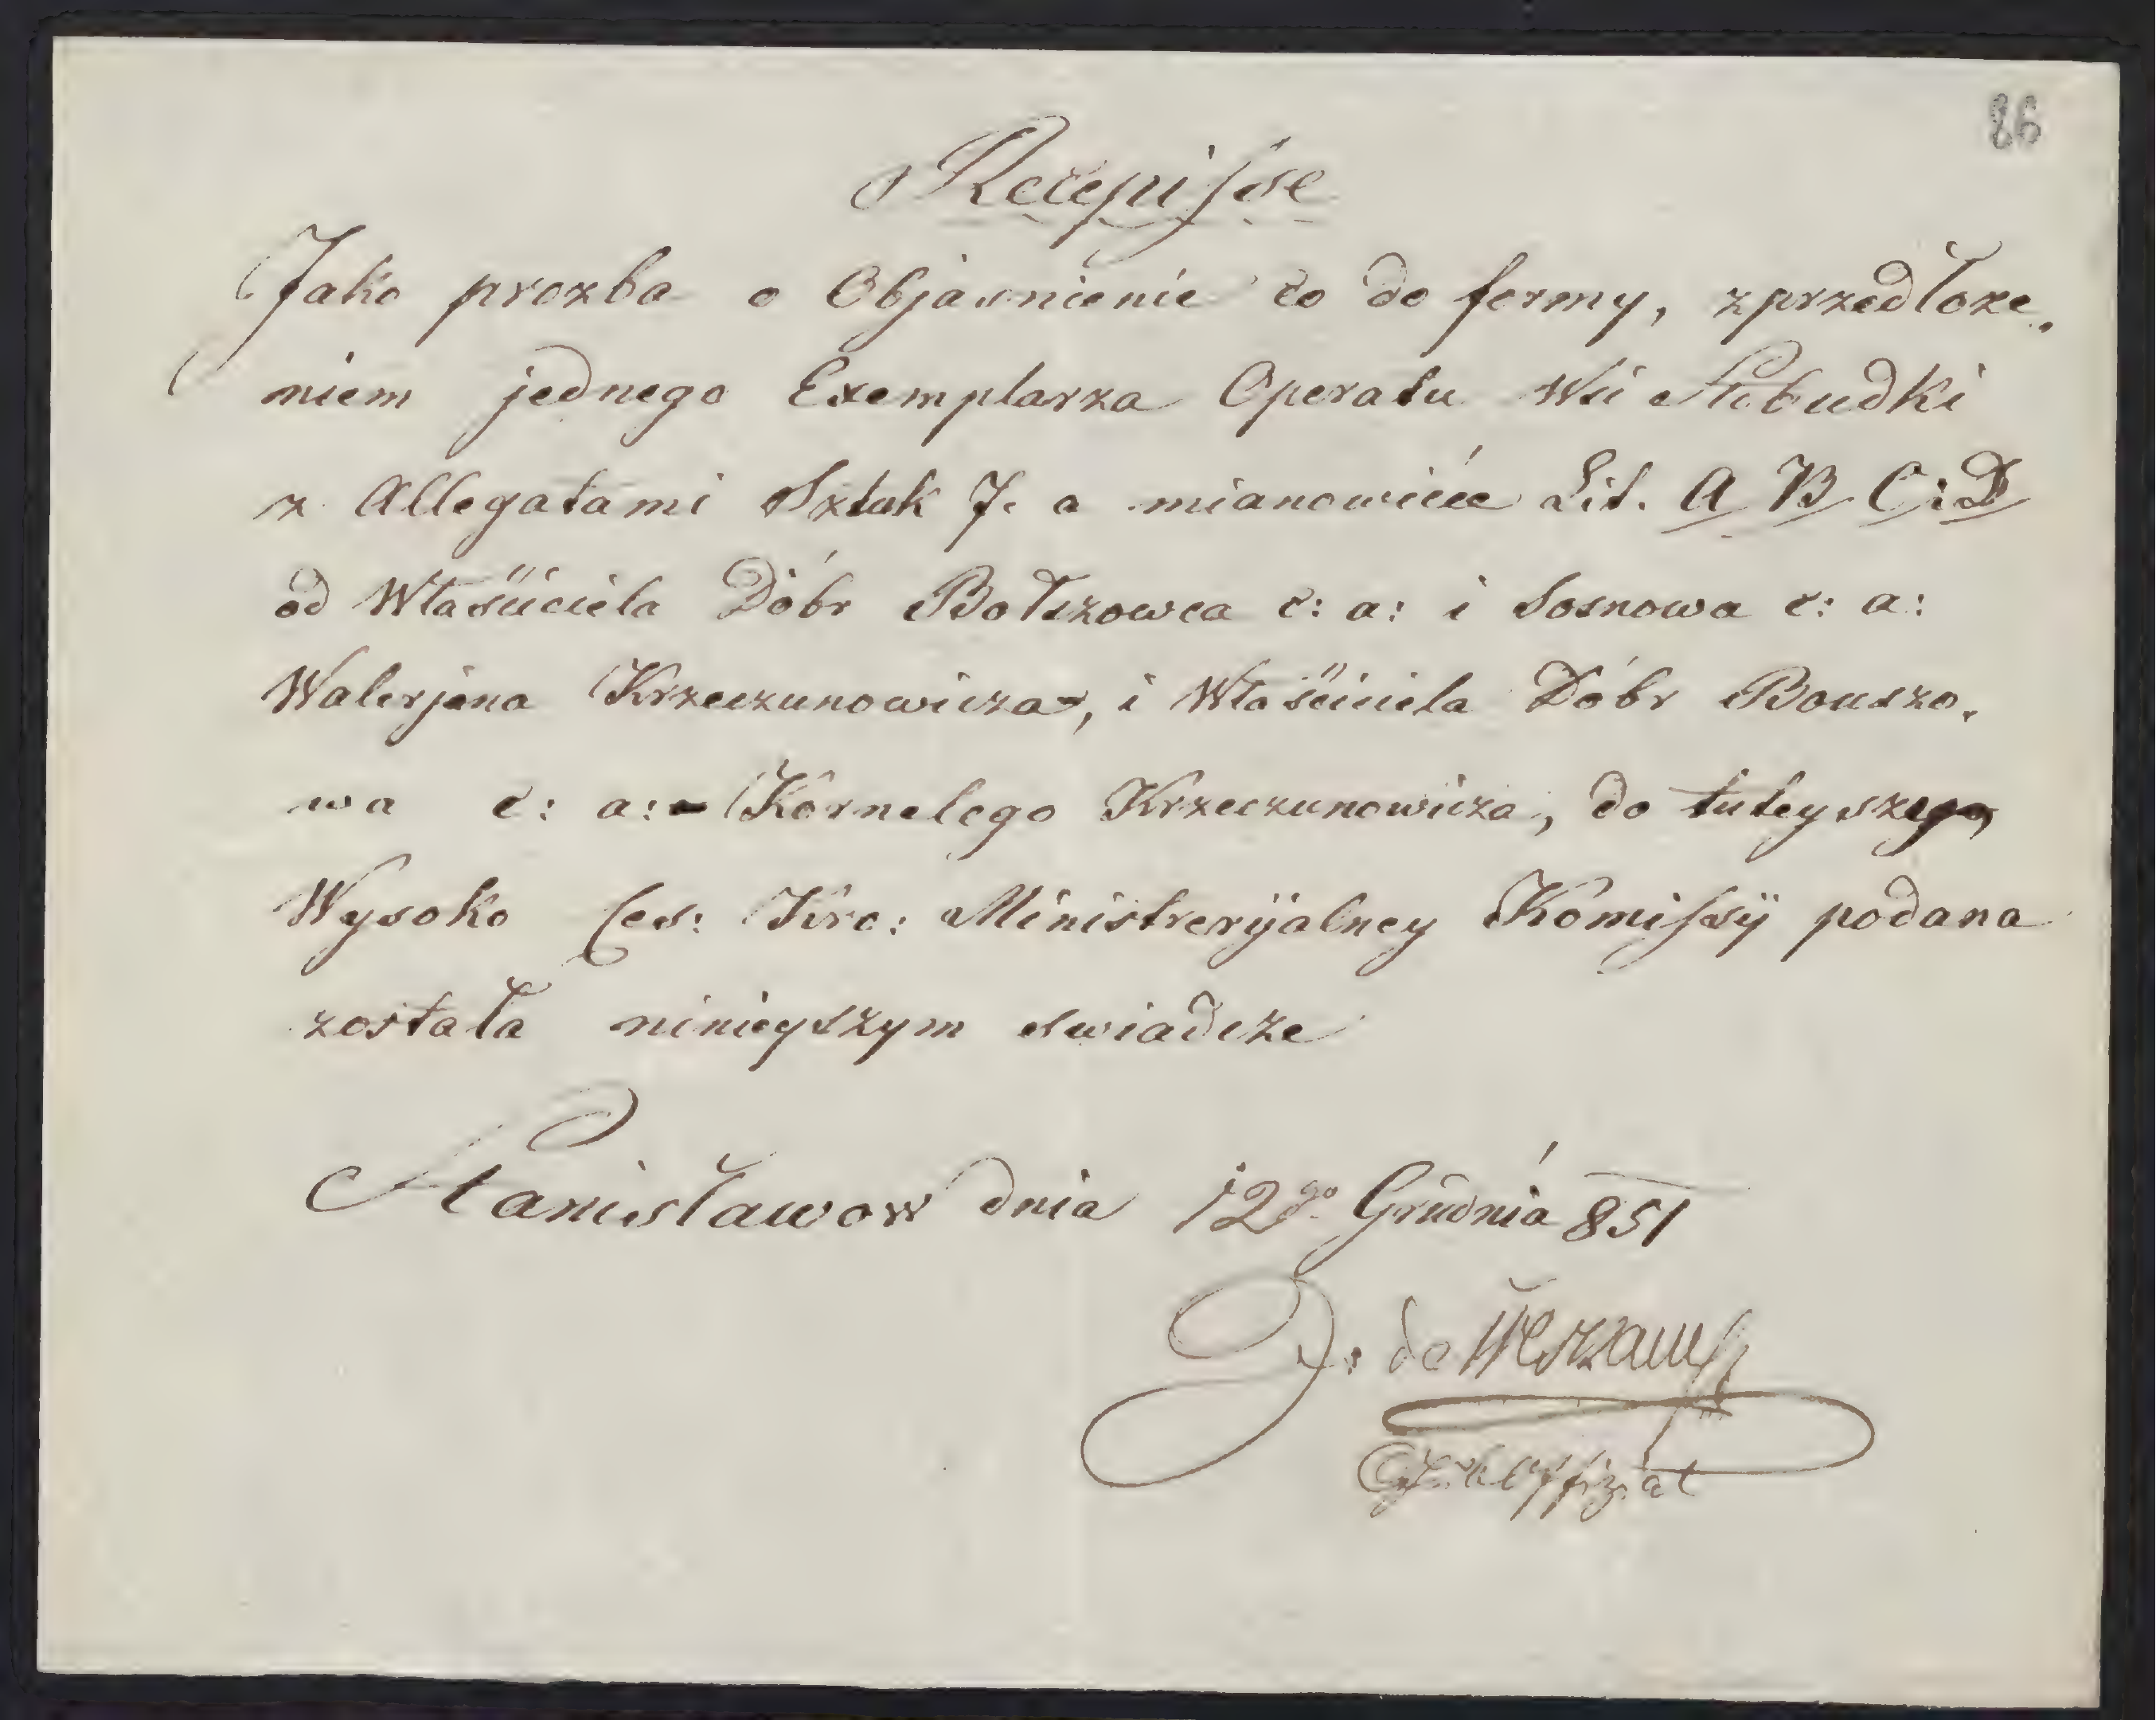 86
Recepisse
Jako prozba o Objasnienie co do formy, zprzedłoże,
niem jednego Exemplarza Operatu Wsi Słobudki
z Allegatami Sztuk 7. a mianowicie Lit. A B C i D
od Właściciela Dóbr Bołszowca c: a: i Sosnowa c: a:
Walerjana Krzeczunowicza, i Właściciela Dóbr Bouszo,
wa c: a: Kornelego Krzeczunowicza, do tuteyszego
Wysoko Ces: Kro: Ministreryjalney Komissÿ podana
została ninieyszym swiadcze
Stanisławow dnia 12go Grudnia 851